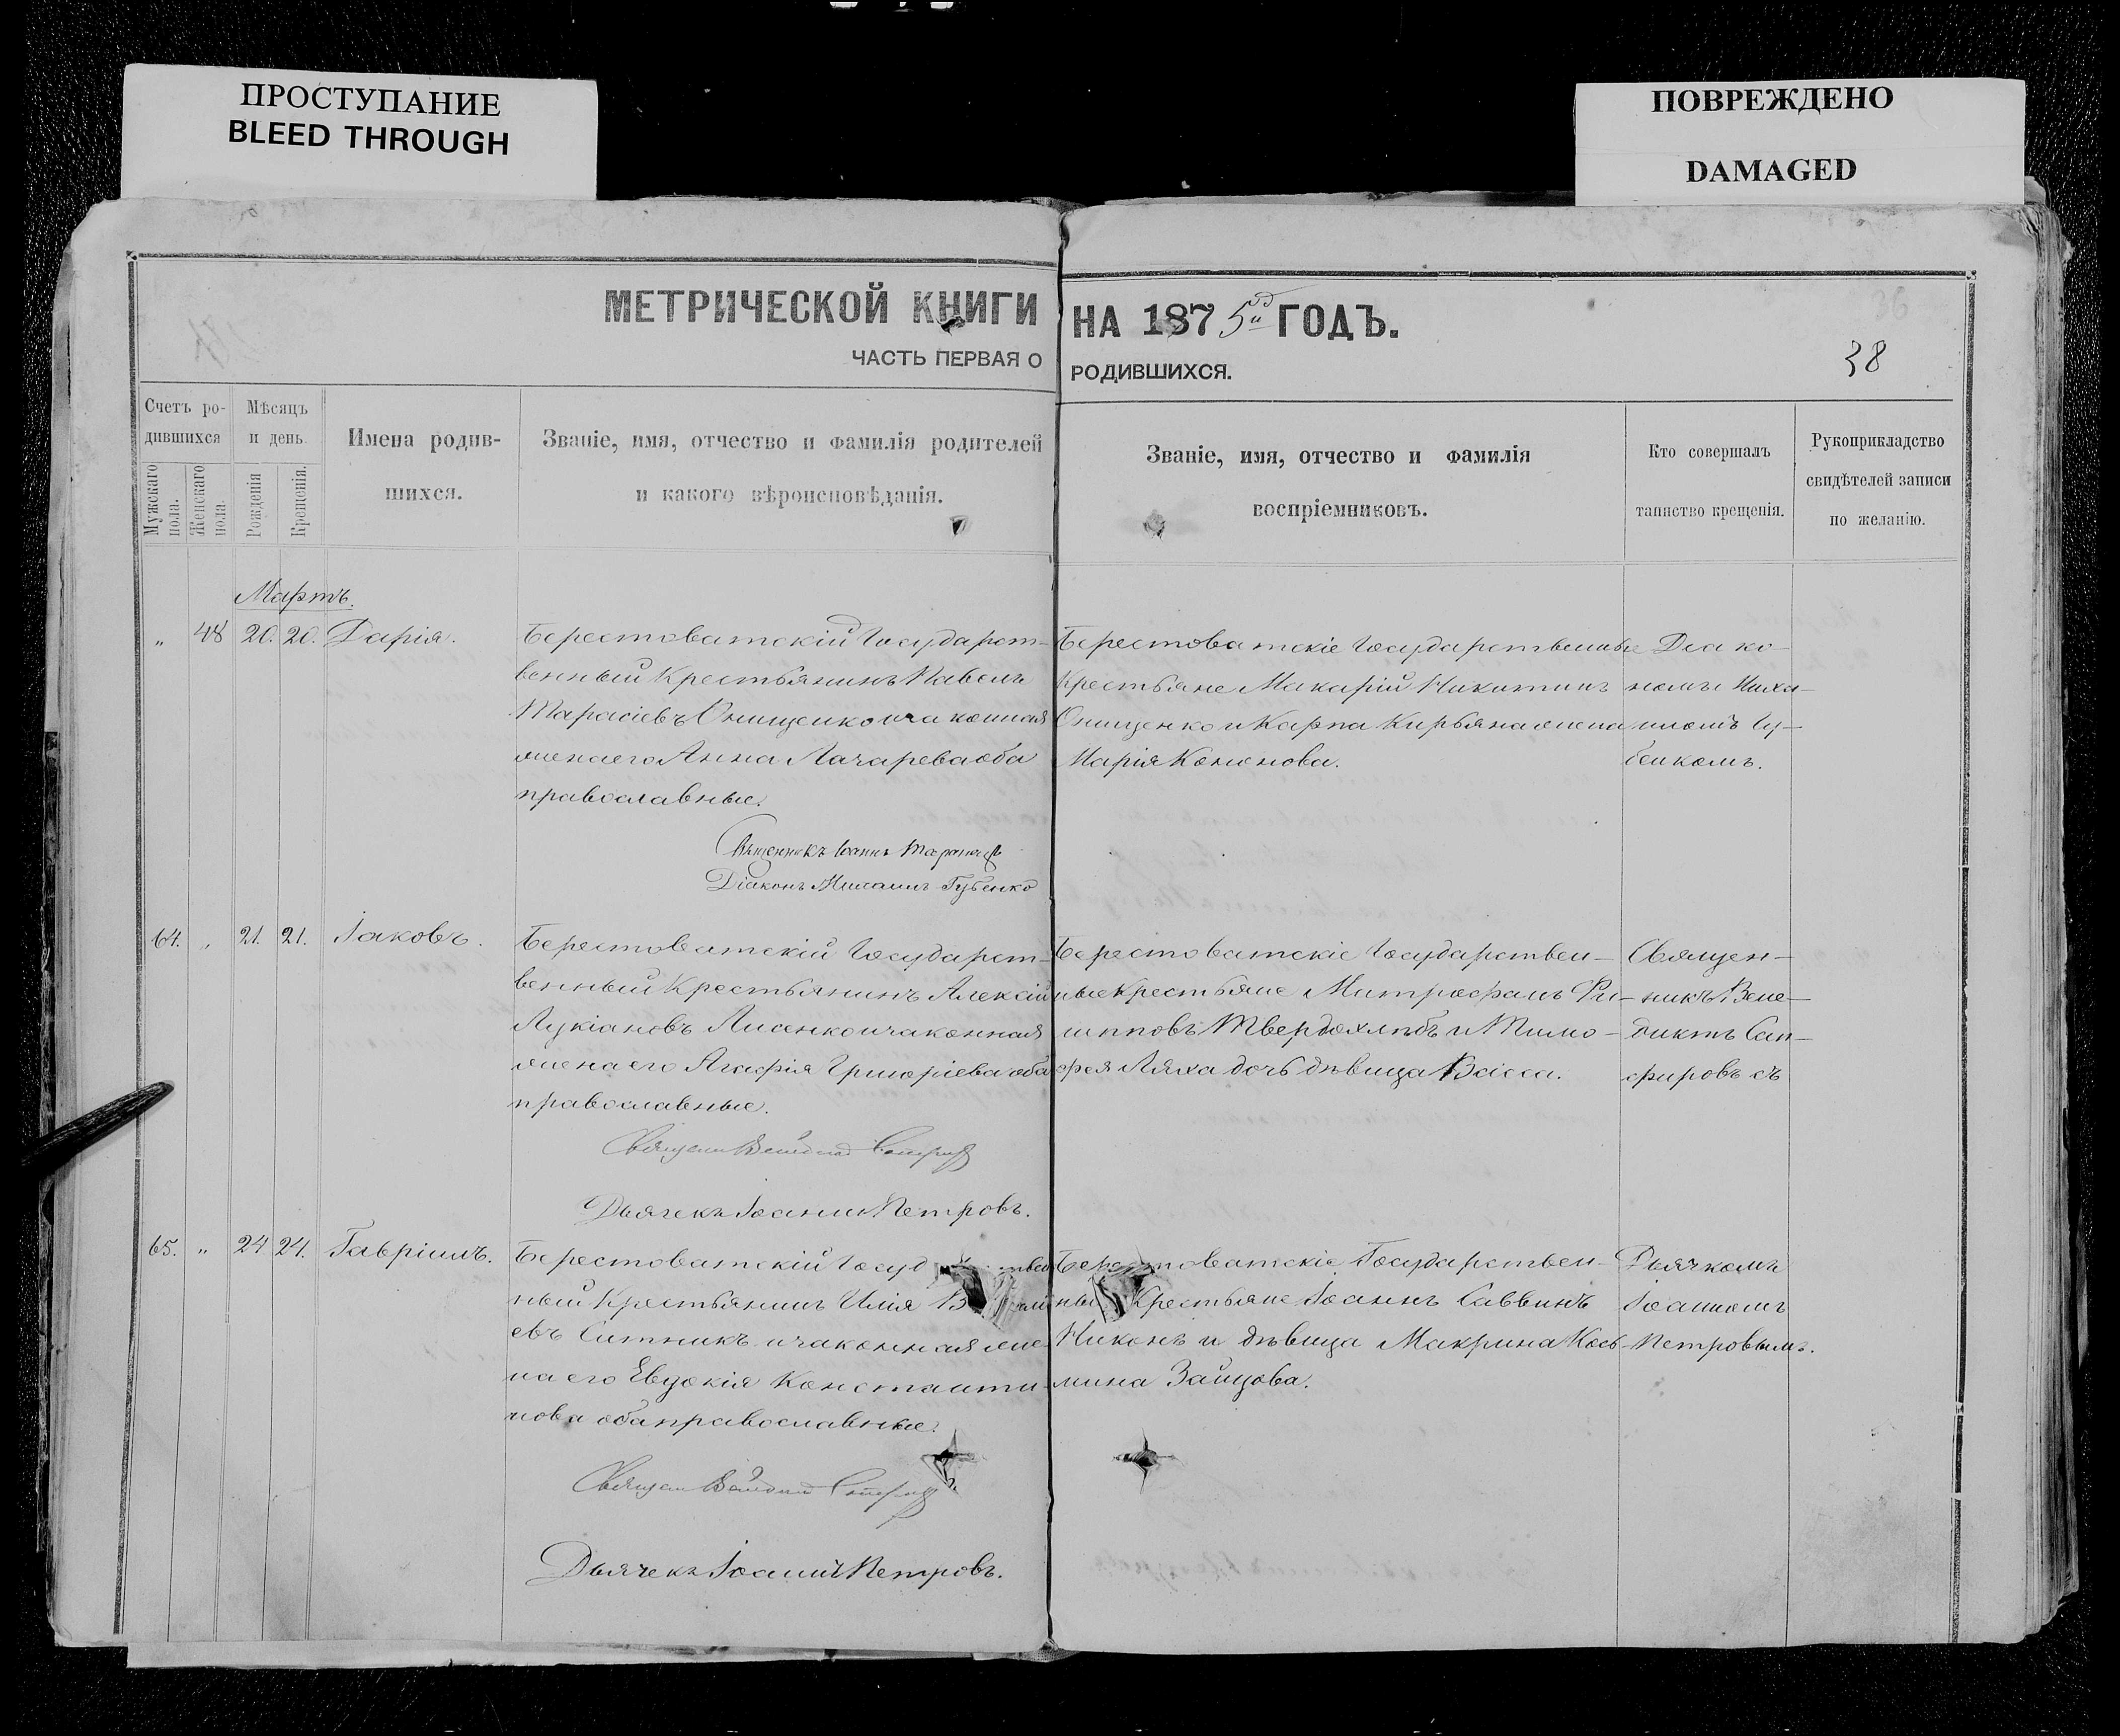 ПРОСТУПАНИЕ
BLEED THROUGH
ПОВРЕЖДЕНО
DAMAGED
МЕТРИЧЕСКОЙ КНИГИ НА 1875 ГОДЪ.
ЧАСТЬ ПЕРВАЯ О РОДИВШИХСЯ.
36
38
Счетъ ро-
дившихся
Мужскаго пола.
Женскаго пола.
Мѣсяцъ
и день
Рожденія
Крещенія.
Имена родив-
шихся.
Званіе, имя, отчество и фамилія родителей
и какого вѣроисповѣданія.
Званіе, имя, отчество и фамилія
воспріемниковъ.
Кто совершалъ
таинство крещенія.
Рукоприкладство
свидѣтелей записи
по желанію.
Мартъ.
„ 48 20. 20. Дарія.
Берестоватскій Государст-
венный Крестьянинъ Павелъ
Тарасіевъ Онищенко и законная
жена его Анна Лазарева оба
православные.
Священникъ Іоаннъ
Діаконъ Михаилъ Губенко
Берестоватскіе Государственные
Крестьяне Макарій Никитинъ
Онищенко и Карпа Кирьяна жена
Марія Кононова.
Діако-
номъ Миха-
иломъ Гу-
бенкомъ.
64. „ 21. 21. Іаковъ.
Берестоватскій Государст-
венный Крестьянинъ Алексій
Лукіановъ Лисенко и законная
жена его Агафія Григоріева оба
православные.
Дьячекъ Іоаннъ Петровъ.
Берестоватскіе Государствен-
ные Крестьяне Митрофанъ Фи-
липповъ Твердохлѣбъ и Тимо-
фея Ляха дочь дѣвица Васса.
Священ-
никъ Вене-
диктъ Сап-
фировъ съ
65. „ 24 24. Гавріилъ.
Берестоватскій Госуд твен
ный Крестьянинъ Илія
евъ Ситникъ и законная же-
на его Евдокія Константи-
нова оба православные.
Дьячекъ Іоаннъ Петровъ.
Берестоватскіе Государствен-
ные Крестьяне Іоаннъ Саввинъ
Никонъ и дѣвица Макрина Кось-
мина Зайцова.
Дьячкомъ
Іоанномъ
Петровымъ.